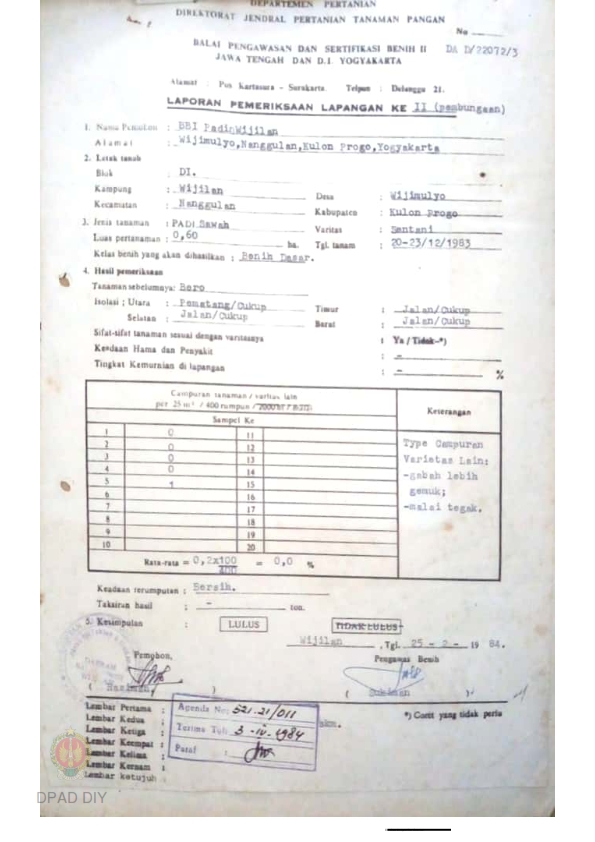 DEPARTEMEN PERTANIAN
DIREKTORAT JENDRAL PERTANIAN TANAMAN PANGAN
No
BALAI PENGAWASAN DAN SERTIFIKASI BENIH II DA D/22072/3
JAWA TENGAH DAN D.I. YOGYAKARTA
Alamat : Pos Kartasura - Surakarta Telpun : Delanggu 21.
LAPORAN PEMERIKSAAN LAPANGAN KE II (pembungaan)
1. Nama Pemohon : BBI Padi Wijilan
Alamat : Wijimulyo,Nanggulan,Kulon Progo,Yogyakarta
2. Letak tanah
Blok : DI.
Kampung : Wijilan Desa : Wijimulyo
Kecamatan : Nanggulan Kabupaten : Kulon Progo
3. Jenis tanaman : PADI Sawah Varitas : Semtani
Luas pertanaman : 0,60 ha. Tgl. tanam : 20-23/12/1983
Kelas benih yang akan dihasilkan : Benih Dasar.
4. Hasil pemeriksaan
Tanaman sebelumnya: Bero
Isolasi ; Utara : Pematang/Cukup Timur : Jalan/Cukup
Selatan : Jalan/Cukup Barat : Jalan/Cukup
Sifat-sifat tanaman sesuai dengan varitasnya : Ya / Tidak-*)
Keadaan Hama dan Penyakit : -
Tingkat Kemurnian di lapangan : - %
Campuran tanaman / varitas lain
per 25 m² / 400 rumpun /
Keterangan
Sampel Ke
1 0 11
2 0 12
3 0 13
4 0 14
5 1 15
6 16
7 17
8 18
9 19
10 20
Type Campuran
Varietas Lain:
-gabah lebih
gemuk;
-malai tegak.
Rata-rata = 0,2x100 = 0,0 %
400
Keadaan rerumputan : Bersih.
Taksiran hasil : - ton.
5. Kesimpulan : LULUS TIDAK LULUS
Wijilan , Tgl. 25 - 2 - 19 84.
Pemohon, Pengawas Benih
( ) ( Sukiman )
Lembar Pertama :
Lembar Kedua :
Lembar Ketiga :
Lembar Keempat :
Lembar Kelima :
Lembar Keenam :
Lembar ketujuh :
Agenda No: 521.21/011
Terima Tgl: 3-IV-1984
Paraf :
*) Coret yang tidak perlu
DPAD DIY